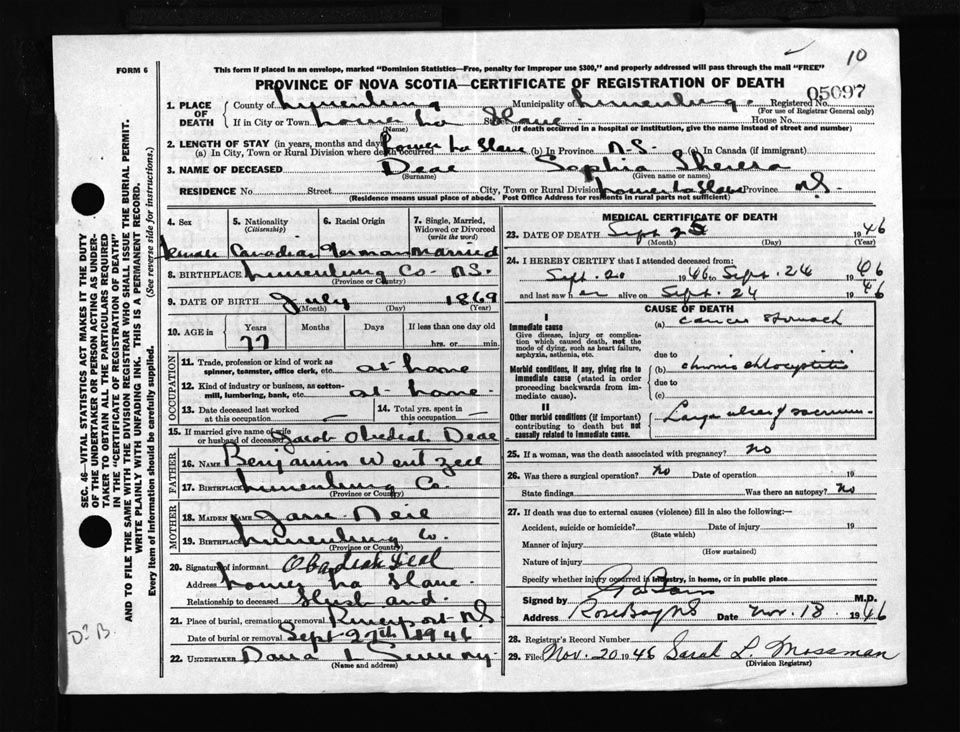 10
FORM 6
This form if placed in an envelope, marked "Dominion Statistics—Free, penalty for improper use $300," and properly addressed will pass through the mail "FREE"
PROVINCE OF NOVA SCOTIA—CERTIFICATE OF REGISTRATION OF DEATH
05097
1. PLACE OF DEATH
County of Lunenburg Municipality of Lunenburg. Registered No.
(For use of Registrar General only)
If in City or Town Lower La Have House No.
(Name) (If death occurred in a hospital or institution, give the name instead of street and number)
2. LENGTH OF STAY (in years, months and days)
(a) In City, Town or Rural Division where death occurred Lower La Have (b) In Province N.S. (c) In Canada (if immigrant)
3. NAME OF DECEASED Deal Sophia
(Surname) (Given name or names)
RESIDENCE No. Street City, Town or Rural Division Lower La Have Province N.S.
(Residence means usual place of abode. Post Office Address for residents in rural parts not sufficient)
4. Sex
Female
5. Nationality
(Citizenship)
Canadian
6. Racial Origin
German
7. Single, Married, Widowed or Divorced
(write the word)
Married
8. BIRTHPLACE Lunenburg Co. N.S.
(Province or Country)
9. DATE OF BIRTH July 1869
(Month) (Day) (Year)
10. AGE in
Years Months Days If less than one day old
77 hrs. or min.
OCCUPATION
11. Trade, profession or kind of work as spinner, teamster, office clerk, etc. at home
12. Kind of industry or business, as cotton-mill, lumbering, bank, etc. at home
13. Date deceased last worked at this occupation —
14. Total yrs. spent in this occupation —
15. If married give name of wife or husband of deceased Jacob Obediah Deal
FATHER
16. NAME Benjamin Wentzell
17. BIRTHPLACE Lunenburg Co.
(Province or Country)
MOTHER
18. MAIDEN NAME Jane
19. BIRTHPLACE Lunenburg Co.
(Province or Country)
20. Signature of informant Obadiah Deal
Address Lower La Have.
Relationship to deceased Husband.
21. Place of burial, cremation or removal Riverport N.S
Date of burial or removal Sept 27th 1946
22. UNDERTAKER
(Name and address)
MEDICAL CERTIFICATE OF DEATH
23. DATE OF DEATH Sept 25 1946
(Month) (Day) (Year)
24. I HEREBY CERTIFY that I attended deceased from:
Sept. 20 1946 to Sept. 24 1946
and last saw her alive on Sept. 24 1946
CAUSE OF DEATH
I
Immediate cause
Give disease, injury or complication which caused death, not the mode of dying, such as heart failure, asphyxia, asthenia, etc.
(a) cancer stomach
due to
Morbid conditions, if any, giving rise to immediate cause (stated in order proceeding backwards from immediate cause).
(b) chronic
due to
(c)
II
Other morbid conditions (if important) contributing to death but not causally related to immediate cause.
Large ulcer of sacrum
25. If a woman, was the death associated with pregnancy? no
26. Was there a surgical operation? No Date of operation 19
State findings Was there an autopsy? No
27. If death was due to external causes (violence) fill in also the following:—
Accident, suicide or homicide? Date of injury 19
(State which)
Manner of injury
(How sustained)
Nature of injury
Specify whether injury occurred in industry, in home, or in public place
Signed by M.D.
Address Rose Bay NS Date Nov. 18 1946
28. Registrar's Record Number
29. Filed Nov. 20 1946 Sarah L. Mossman
(Division Registrar)
SEC. 46—VITAL STATISTICS ACT MAKES IT THE DUTY
OF THE UNDERTAKER OR PERSON ACTING AS UNDER-
TAKER TO OBTAIN ALL THE PARTICULARS REQUIRED
IN THE "CERTIFICATE OF REGISTRATION OF DEATH"
AND TO FILE THE SAME WITH THE DIVISION REGISTRAR WHO SHALL ISSUE THE BURIAL PERMIT.
WRITE PLAINLY WITH UNFADING INK. THIS IS A PERMANENT RECORD.
Every item of information should be carefully supplied. (See reverse side for instructions.)